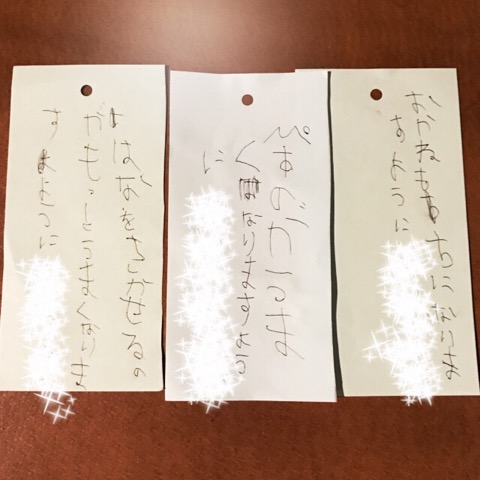 おかねもちになりま
すように
ぴあのがうま
くなりますよう
に
さかせるの
がもっとうまくなりま
すように